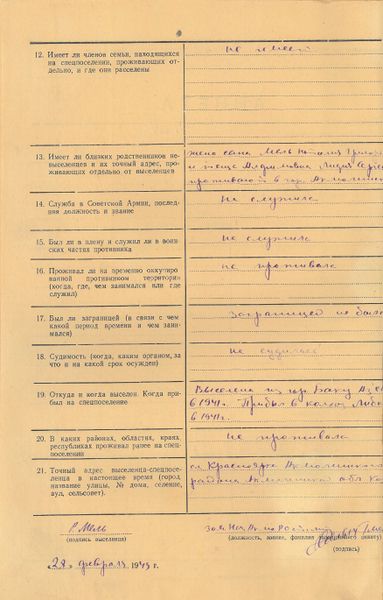 12. Имеет ли членов семьи, находящихся
на спецпоселении, проживающих от-
дельно, и где они расселены
не имеет
13. Имеет ли близких родственников не-
выселенцев и их точный адрес, про-
живающих отдельно от выселенцев
жена сына Мель
и теща Лидия
проживают в гор.
14. Служба в Советской Армии, послед-
няя должность и звание
не служила
15. Был ли в плену и служил ли в воин-
ских частях противника
не служила
16. Проживал ли на временно оккупиро-
ванной противником территории
(когда, где, чем занимался или где
служил)
не проживала
17. Был ли заграницей (в связи с чем
какой период времени и чем зани-
мался)
Заграницей не была
18. Судимость (когда, каким органом, за
что и на какой срок осужден)
не судилась
19. Откуда и когда выселен. Когда при-
был на спецпоселение
Выселена из гор Баку
в 1941г. Прибыл в
в 1941г.
20. В каких районах, областях, краях,
республиках проживал ранее на спец-
поселении
не проживала
21. Точный адрес выселенца-спецпосе-
ленца в настоящее время (город
название улицы, № дома, селение,
аул, сельсовет).
района обл
Р. Мель
(подпись выселенца)
(должность, звание, фамилия
анкету)
(подпись)
„24" февраля 1949 г.